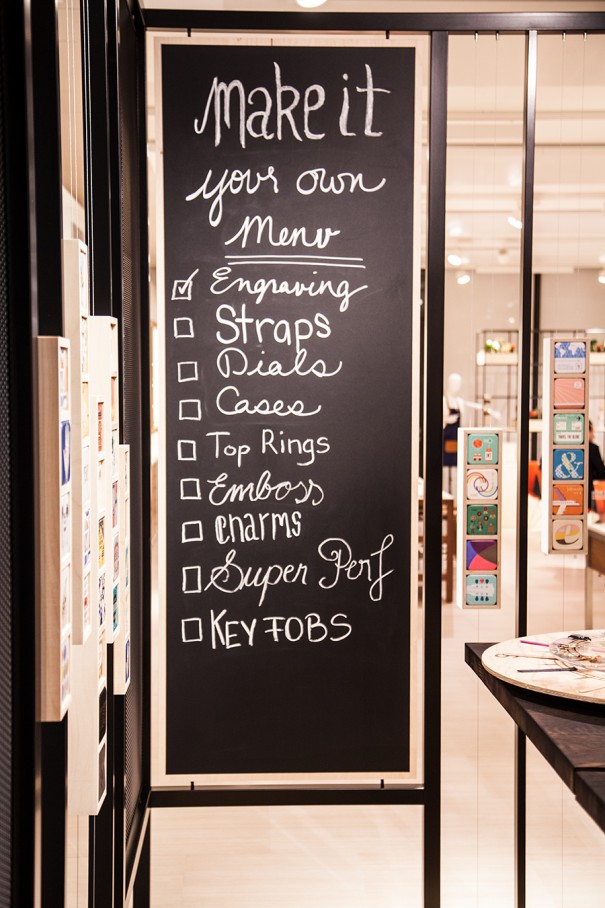 make it
your own
Menu
Engraving
Straps
Dials
Cases
Top Rings
Emboss
charms
Super Perf
KEY FOBS
&